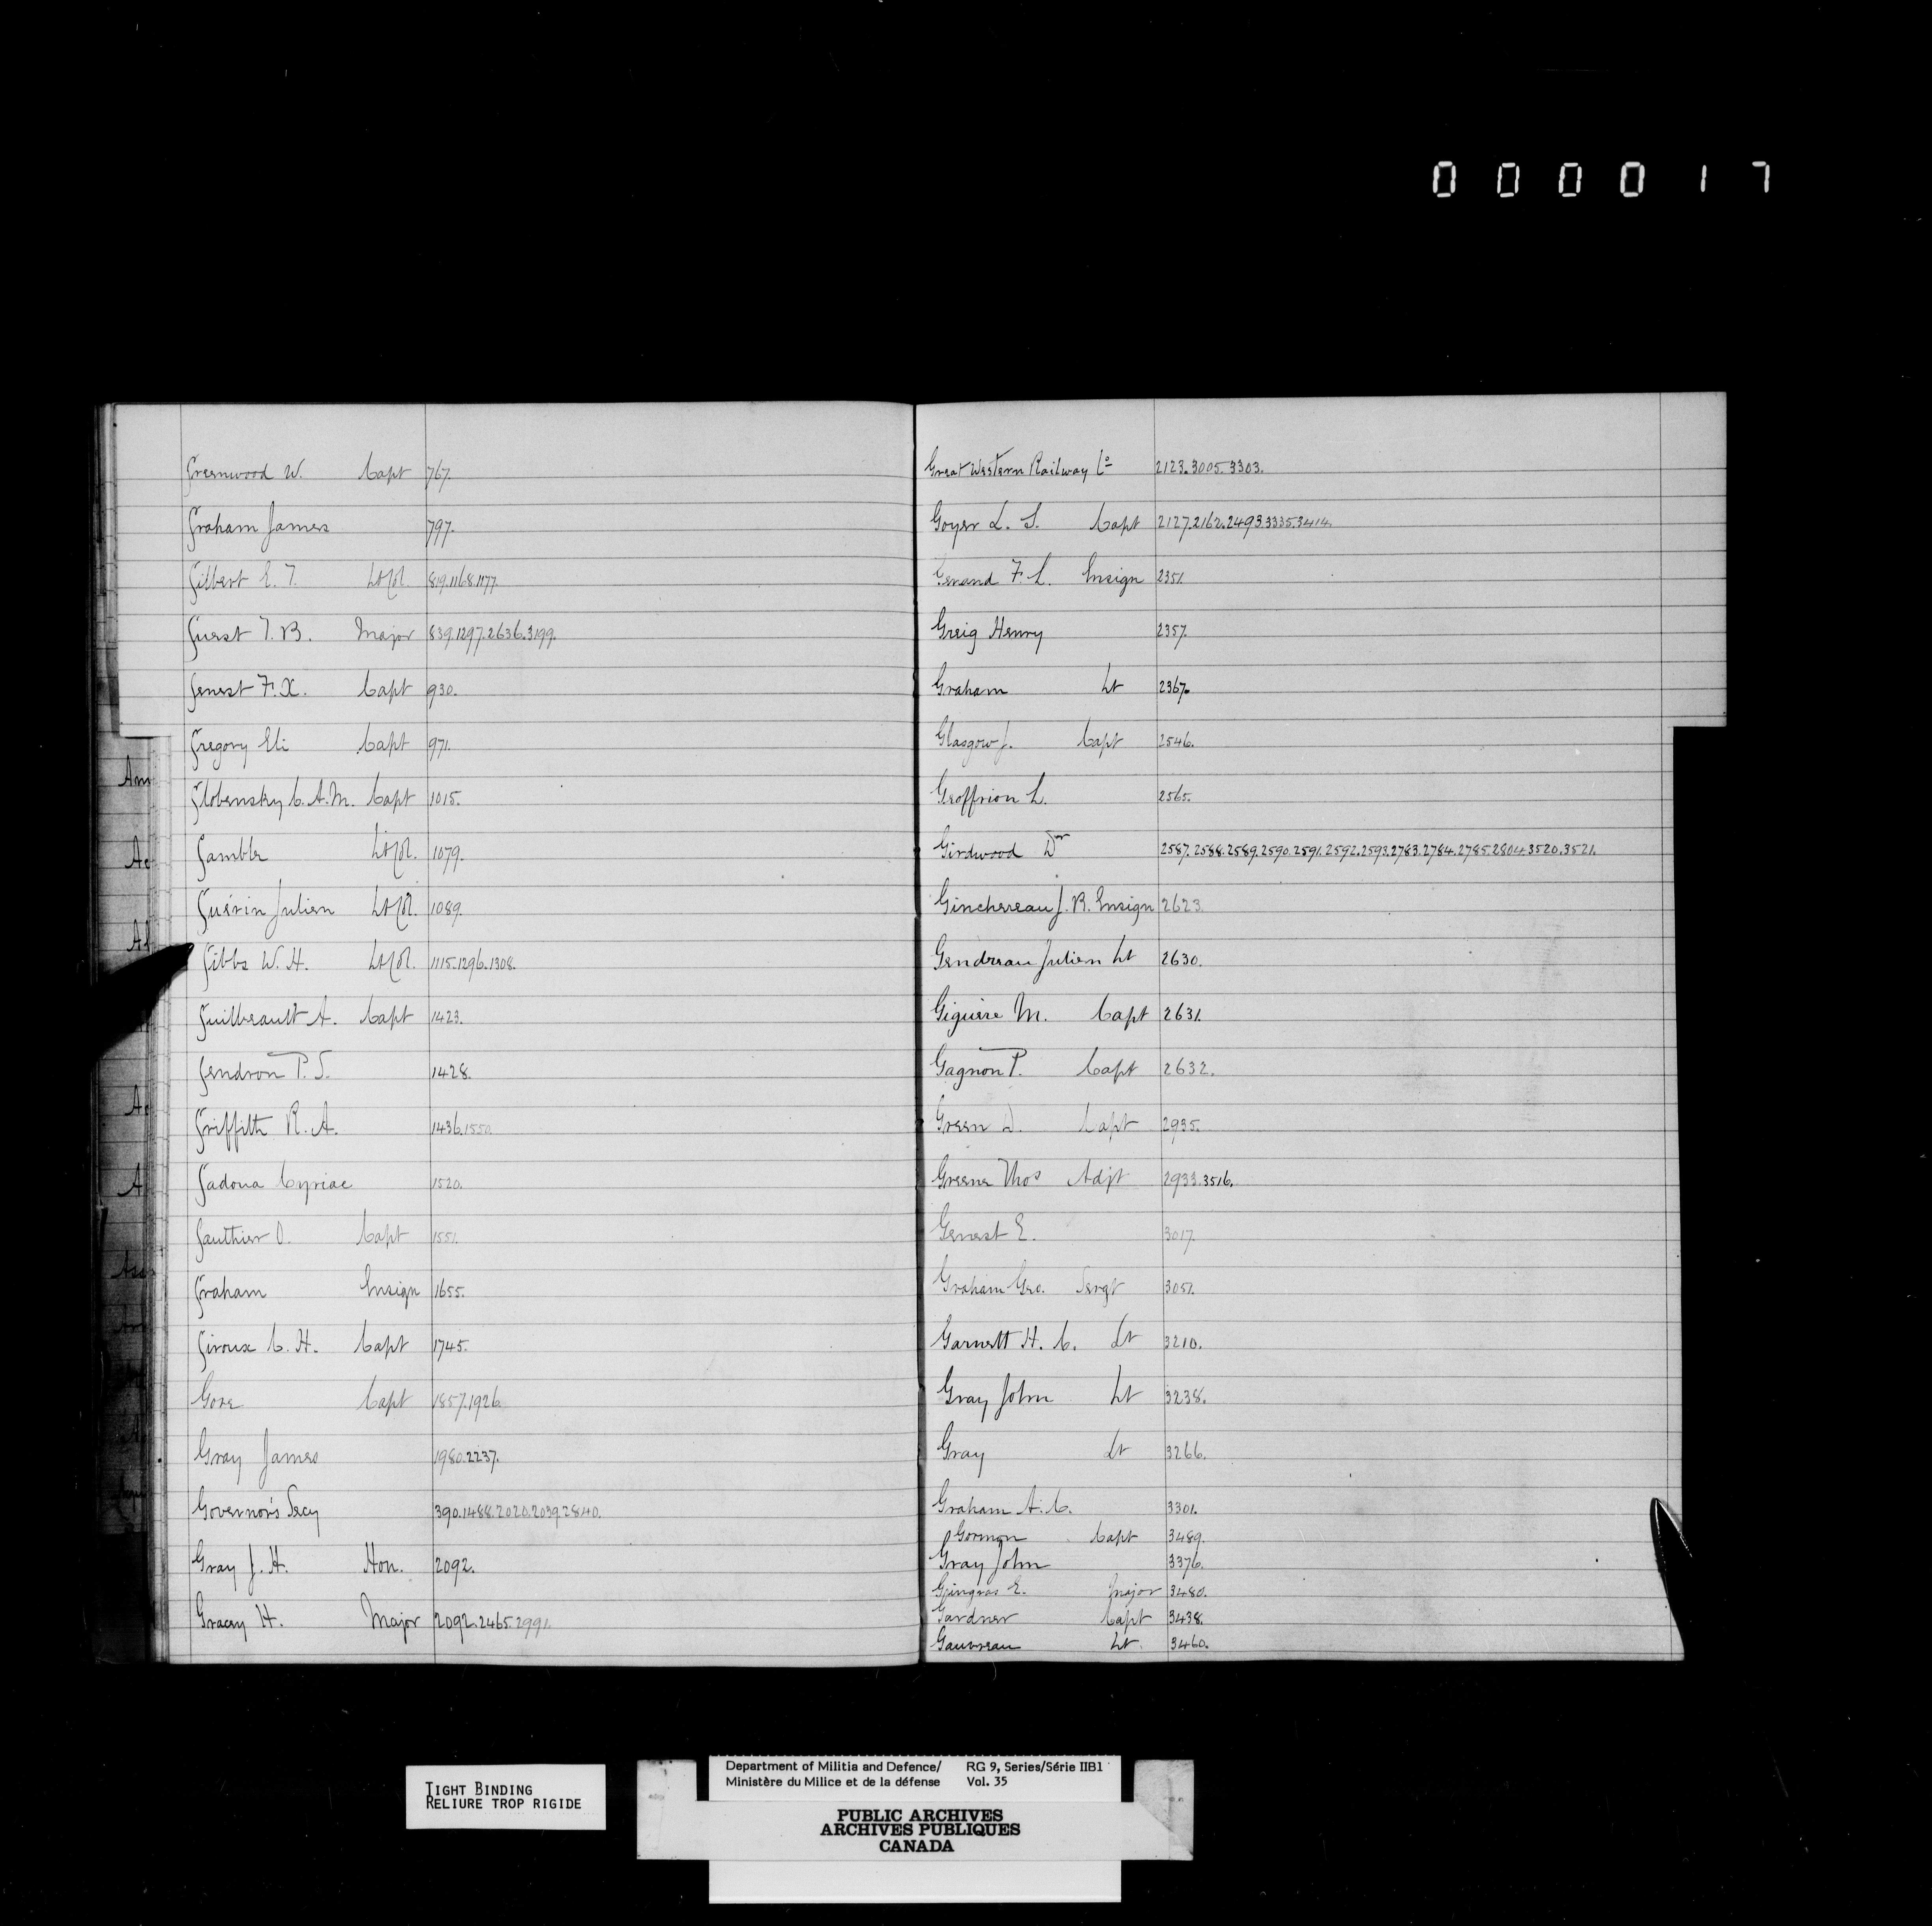 000017
Greenwood W. Capt 767.
Graham James 797.
Gilbert E. T. Lt Col. 819.1168.1177
Guest T. B. Major 839.1297.2636.3199.
Genest F. X. Capt 930.
Gregory Eli Capt 971.
Globensky C. A. M. Capt 1015.
Gamble Lt Col. 1079.
Guérin Julien Lt Col. 1089.
Gibbs W. H. Lt Col. 1115.1296.1308.
Guilbeault A. Capt 1423.
Gendron P. S. 1428.
Griffith R. A. 1436.1550.
Gadoua Cyriac 1520.
Gauthier O. Capt 1551.
Graham Ensign 1655.
Giroux C. H. Capt 1745.
Gore Capt 1857.1926
Gray James 1980.2237.
Governor's Secy 390.1488.2020.2039.2840.
Gray J. H. Hon. 2092.
Gracey H. Major 2092.2465.2991.
Great Western Railway Co 2123.3005.3303.
Goyer L. S. Capt 2127.2162.2493.3335.3414.
Genand F. L. Ensign 2351.
Greig Henry 2357.
Graham Lt 2367.
Glasgow J. Capt 2546.
Geoffrion L. 2565.
Girdwood Dr 2587.2588.2589.2590.2591.2592.2593.2783.2784.2785.2804.3520.3521.
Ginchereau J. B. Ensign 2623.
Gendreau Julien Lt 2630.
Giguère M. Capt 2631.
Gagnon P. Capt 2632.
Green D. Capt 2935.
Greene Thos Adjt 2933.3516.
Genest E. 3017.
Graham Geo. Sergt 3051.
Garnett H. C. Lt 3210.
Gray John Lt 3238.
Gray Lt 3266.
Graham A. C. 3301.
Gormon Capt 3489.
Gray John 3376.
Gingras E. Major 3480.
Gardner Capt 3438.
Gauvreau Lt. 3460.
Am
TIGHT BINDING
RELIURE TROP RIGIDE
Department of Militia and Defence/ RG 9, Series/Série IIB1
Ministère du Milice et de la défense Vol. 35
PUBLIC ARCHIVES
ARCHIVES PUBLIQUES
CANADA